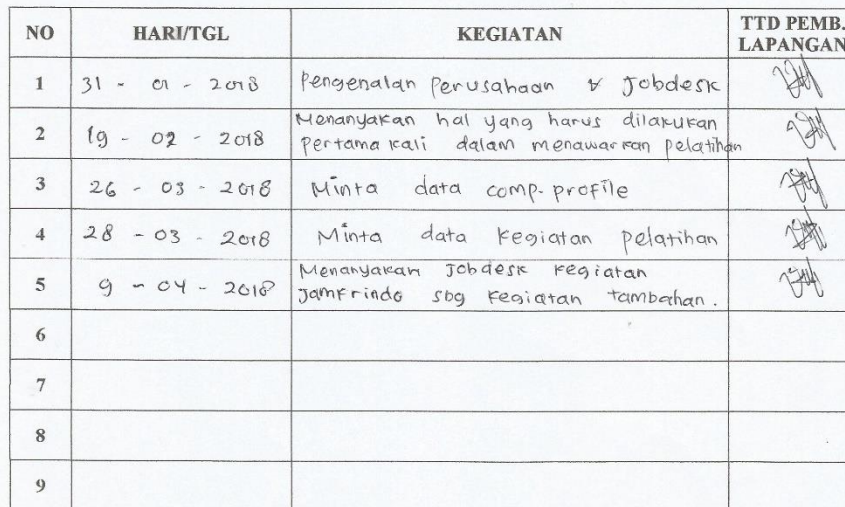 NO HARI/TGL KEGIATAN TTD PEMB. LAPANGAN
1 31 - 01 - 2018 Pengenalan Perusahaan & Jobdesk
2 19 - 02 - 2018 Menanyakan hal yang harus dilakukan
pertama kali dalam menawarkan pelatihan
3 26 - 03 - 2018 Minta data comp. profile
4 28 - 03 - 2018 Minta data kegiatan pelatihan
5 9 - 04 - 2018 Menanyakan Jobdesk kegiatan
Jamkrindo sbg kegiatan tambahan.
6
7
8
9